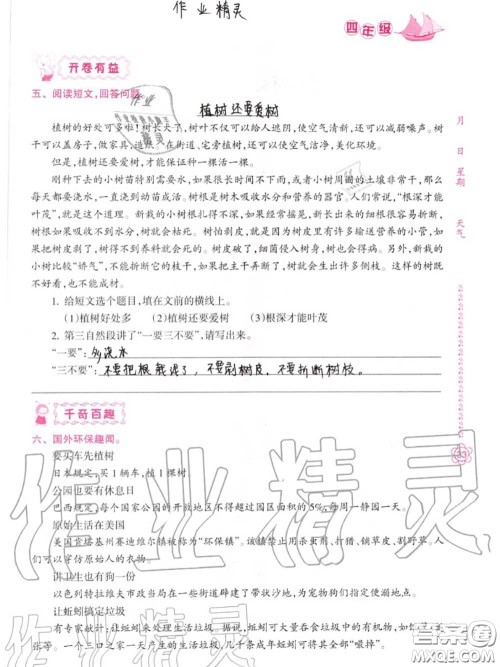 作业精灵
四年级
开卷有益
五、阅读短文，回答问题。
植树还要爱树
植树的好处可多啦！树长大了，树叶不仅可以给人遮阴，使空气清新，还可以减弱噪声。树干可以盖房子，做家具，造纸。在街道、宅旁植树，还可以使空气洁净，美化环境。
但是，植树还要爱树，才能保证种一棵活一棵。
刚种下去的小树苗特别需要水，如果很长时间不下雨，或者小树周围的土壤非常干，那么每天都要浇水，一直浇到幼苗成活。树根是树木吸收水分和营养的器官，人们常说，“根深才能叶茂”，就是这个道理。新栽的小树根扎得不深，如果经常摇晃，新长出来的根须很容易折断，树就会枯死。树怕伤皮，是因为树皮里有许多输送营养的小管，如果树皮剥掉了，树得不到养料就会死亡。树皮破了，细菌侵入树身，树也会得病。另外，新栽的小树比较“娇气”，不能折断它的枝干，如果把主干弄断了，树就会生出许多侧枝。这样的树既不好看，也不能成材。
1. 给短文选个题目，填在文前的横线上。
(1)植树好处多 (2)植树还要爱树 (3)根深才能叶茂
2. 第三自然段讲了“一要三不要”，请写出来。
“一要”：多浇水
“三不要”：不要把根
，不要剥树皮，不要折断树枝。
千奇百趣
六、国外环保趣闻。
要买车先植树
日本规定，买1辆车，植1棵树。
公园也要有休息日
巴西规定，每个国家公园的开放地区不得超过园区面积的5%，每周一静园一天。
原始生活在美国
美国肯塔基州赛迪维尔镇被称为“环保镇”。该镇禁止用杀虫剂、打猎、锄草皮、割野菜。人们可以学仿原始人的衣物。
讲卫生也有狗一份
以色列特拉维夫市政当局在一些街道旁建了带状沙地，为宠物狗们提供温馨舒适的厕所。
让蚯蚓搞定垃圾
有专家献计，让蚯蚓来处理生活垃圾。据悉，蚯蚓可大量吞食垃圾中的有机物，如剩菜、纸张等。一个三口之家一天产生的生活垃圾，几千条成年蚯蚓可将其全部“吸掉”。
月
日
星期
天气
作业精灵